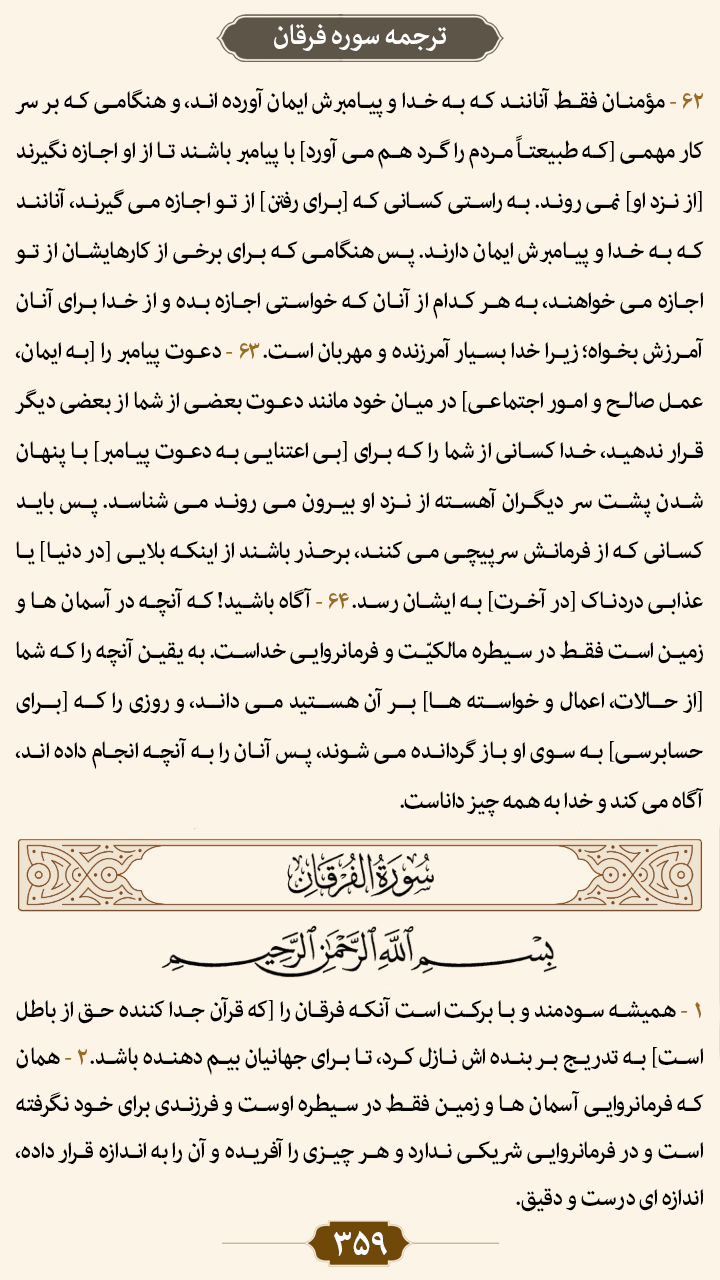 ترجمه سوره فرقان
۶۲ - مؤمنان فقط آنانند که به خدا و پیامبرش ایمان آورده اند، و هنگامی که بر سر
کار مهمی [که طبیعتاً مردم را گرد هم می آورد] با پیامبر باشند تا از او اجازه نگیرند
[از نزد او] نمی روند. به راستی کسانی که [برای رفتن] از تو اجازه می گیرند، آنانند
که به خدا و پیامبرش ایمان دارند. پس هنگامی که برای برخی از کارهایشان از تو
اجازه می خواهند، به هر کدام از آنان که خواستی اجازه بده و از خدا برای آنان
آمرزش بخواه؛ زیرا خدا بسیار آمرزنده و مهربان است. ۶۳ - دعوت پیامبر را [به ایمان،
عمل صالح و امور اجتماعی] در میان خود مانند دعوت بعضی از شما از بعضی دیگر
قرار ندهید، خدا کسانی از شما را که برای [بی اعتنایی به دعوت پیامبر] با پنهان
شدن پشت سر دیگران آهسته از نزد او بیرون می روند می شناسد. پس باید
کسانی که از فرمانش سرپیچی می کنند، برحذر باشند از اینکه بلایی [در دنیا] یا
عذابی دردناک [در آخرت] به ایشان رسد. ۶۴ - آگاه باشید! که آنچه در آسمان ها و
زمین است فقط در سیطره مالکیّت و فرمانروایی خداست. به یقین آنچه را که شما
[از حالات، اعمال و خواسته ها] بر آن هستید می داند، و روزی را که [برای
حسابرسی] به سوی او باز گردانده می شوند، پس آنان را به آنچه انجام داده اند،
آگاه می کند و خدا به همه چیز داناست.
سُورَةُ الفُرقَانِ
بِسْمِ اللَّهِ الرَّحْمَٰنِ الرَّحِيمِ
۱ - همیشه سودمند و با برکت است آنکه فرقان را [که قرآن جدا کننده حق از باطل
است] به تدریج بر بنده اش نازل کرد، تا برای جهانیان بیم دهنده باشد. ۲ - همان
که فرمانروایی آسمان ها و زمین فقط در سیطره اوست و فرزندی برای خود نگرفته
است و در فرمانروایی شریکی ندارد و هر چیزی را آفریده و آن را به اندازه قرار داده،
اندازه ای درست و دقیق.
۳۵۹